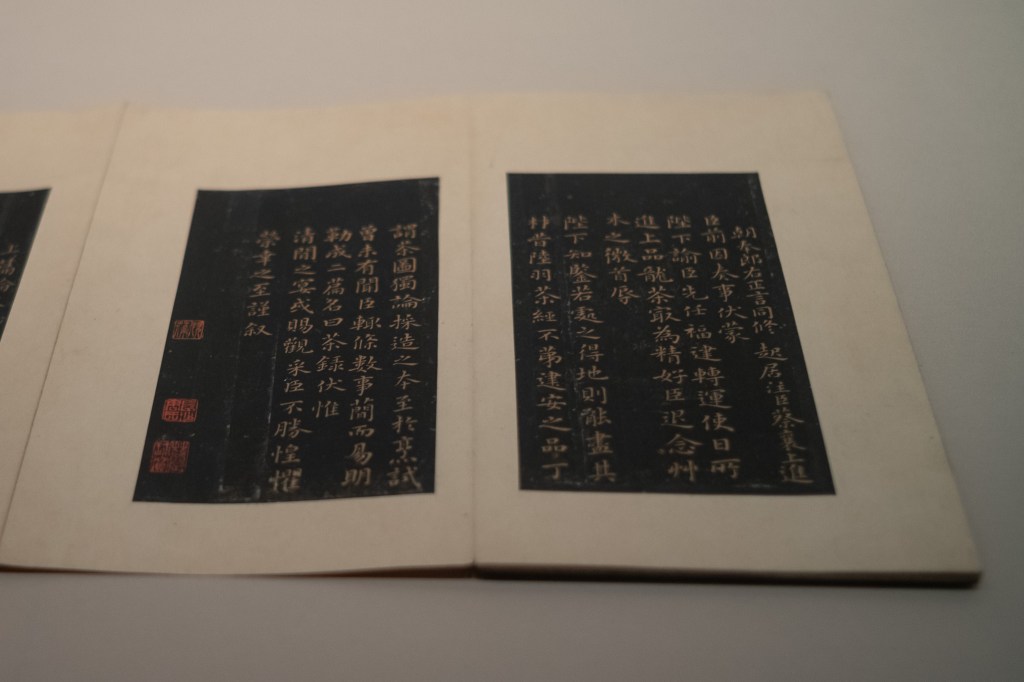 朝奉郎右正言同修起居注臣蔡襄上進
臣前因奏事伏蒙
陛下諭臣先任福建轉運使日所
進上品龍茶最為精好臣退念艸
木之微首辱
陛下知鑒若處之得地則能盡其
材昔陸羽茶經不第建安之品丁
謂茶圖獨論採造之本至於烹試
曾未有聞臣輒條數事簡而易明
勒成二篇名曰茶錄伏惟
清閒之宴或賜觀采臣不勝惶懼
榮幸之至謹叙
上篇論